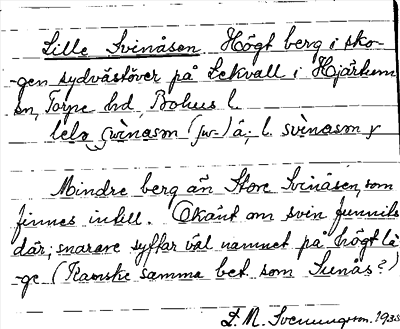 Lille Svinåsen Högt berg i sko-
-gen sydvästöver på Lekvall i Hjärtum
sn, Torpe hd, Bohus l.
lela svinåsən (sv-) å; l. svinåsən y
Mindre berg än Store Svinåsen, som
finnes intill. Okänt om svin funnits
där; snarare syftar väl namnet på högt lä-
-ge (Kanske samma bet. som Sunås?)
D. M. Svenungsson. 1935